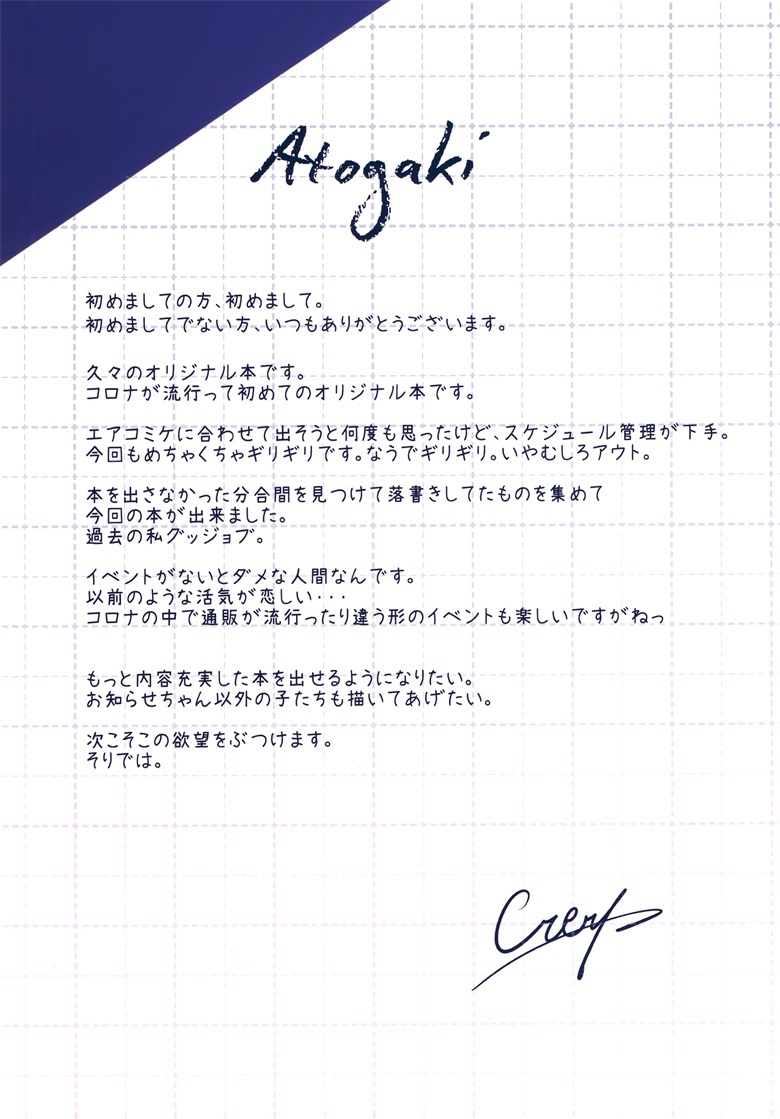 Atogaki
初めましての方、初めまして。
初めましてでない方、いつもありがとうございます。
久々のオリジナル本です。
コロナが流行って初めてのオリジナル本です。
エアコミケに合わせて出そうと何度も思ったけど、スケジュール管理が下手。
今回もめちゃくちゃギリギリです。なうでギリギリ。いやむしろアウト。
本を出さなかった分合間を見つけて落書きしてたものを集めて
今回の本が出来ました。
過去の私グッジョブ。
イベントがないとダメな人間なんです。
以前のような活気が恋しい・・・
コロナの中で通販が流行ったり違う形のイベントも楽しいですがねっ
もっと内容充実した本を出せるようになりたい。
お知らせちゃん以外の子たちも描いてあげたい。
次こそこの欲望をぶつけます。
そりでは。